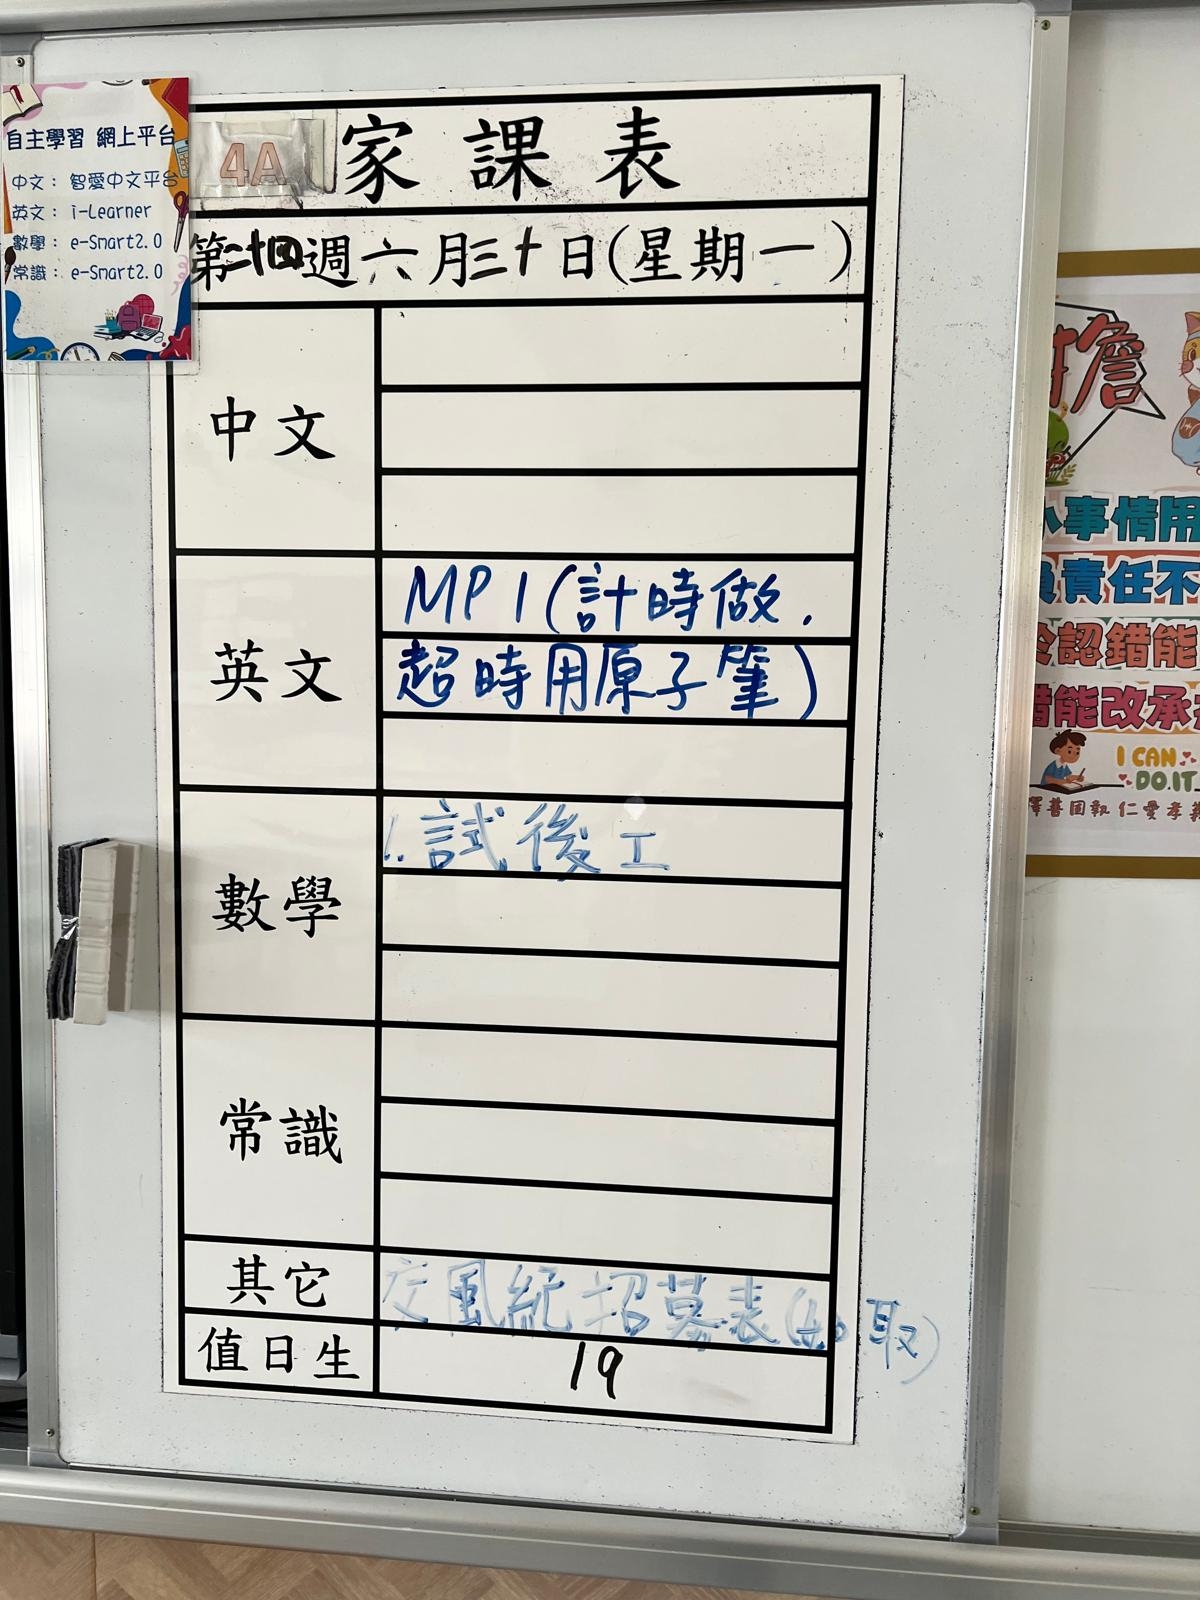 自主學習 網上平台
中文： 智愛中文平台
英文： i-Learner
數學： e-Smart2.0
常識： e-Smart2.0
4A 家課表
第二十四週六月三十日(星期一)
中文
英文
MP 1 (計時做.
超時用原子筆)
數學
1. 試後工
常識
其它
交風紀招募表(如取)
值日生
19
小事情用
負責任不
於認錯能
錯能改承
I CAN
DO.IT
擇善固執 仁愛孝義